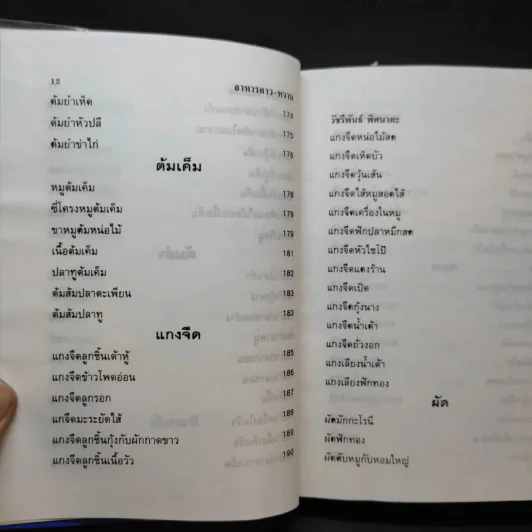 12 อาหารคาว-หวาน
ต้มยำเห็ด 174
ต้มยำหัวปลี 175
ต้มยำขาไก่ 176
ต้มเค็ม
หมูต้มเค็ม 178
ซี่โครงหมูต้มเค็ม 179
ขาหมูต้มหน่อไม้ 179
เนื้อต้มเค็ม 181
ปลาทูต้มเค็ม 182
ต้มส้มปลาตะเพียน 183
ต้มส้มปลาทู 183
แกงจืด
แกงจืดลูกชิ้นเต้าหู้ 185
แกงจืดข้าวโพดอ่อน 186
แกงจืดลูกรอก 187
แกจืดมะระยัดไส้ 188
แกงจืดลูกชิ้นกุ้งกับผักกาดขาว 189
แกงจืดลูกชิ้นเนื้อวัว 190
วัชรีพันธ์ พิศนาคะ
แกงจืดหน่อไม้สด
แกงจืดเห็ดบัว
แกงจืดวุ้นเส้น
แกงจืดไส้หมูสอดไส้
แกงจืดเครื่องในหมู
แกงจืดฟักปลาหมึกสด
แกงจืดหัวไชโป๊
แกงจืดแตงร้าน
แกงจืดเป็ด
แกงจืดกุ้งนาง
แกงจืดน้ำเต้า
แกงจืดถั่วงอก
แกงเลียงน้ำเต้า
แกงเลียงฟักทอง
ผัด
ผัดมักกะโรนี
ผัดฟักทอง
ผัดตับหมูกับหอมใหญ่